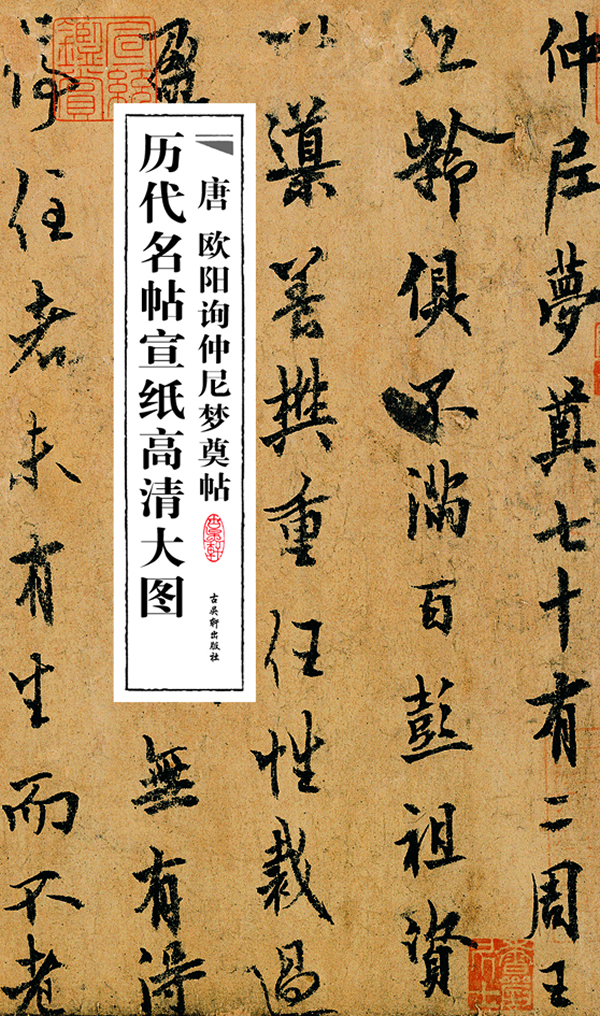 仲尼夢奠七十有二周王
九齡俱不滿百彭祖資
以導養樊重任性裁過
盈
無有得
停住者未有生而不老
唐 欧阳询仲尼梦奠帖
古吴轩出版社
历代名帖宣纸高清大图